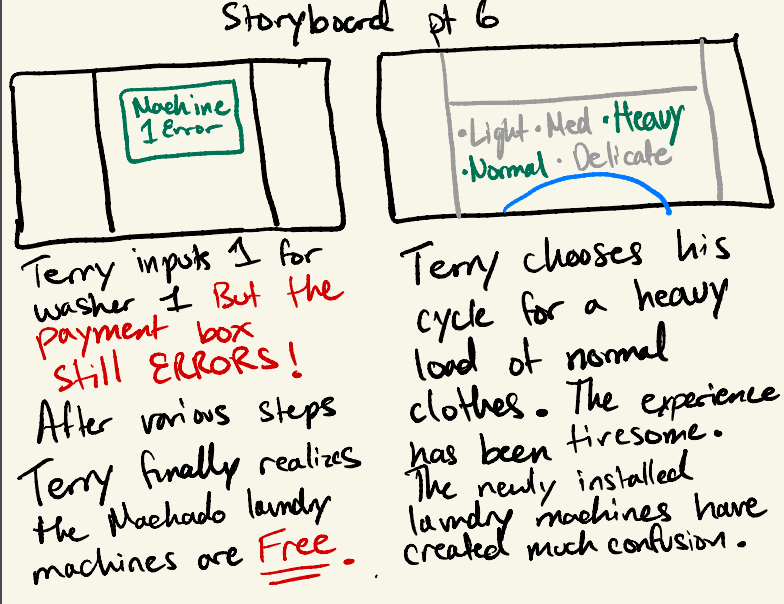 Storyboard pt 6
Machine
1 Error
Terry inputs 1 for
washer 1 But the
payment box
still ERRORS!
After various steps
Terry finally realizes
the Machado laundry
machines are Free.
• Light • Med • Heavy
• Normal • Delicate
Terry chooses his
cycle for a heavy
load of normal
clothes. The experience
has been tiresome.
The newly installed
laundry machines have
created much confusion.